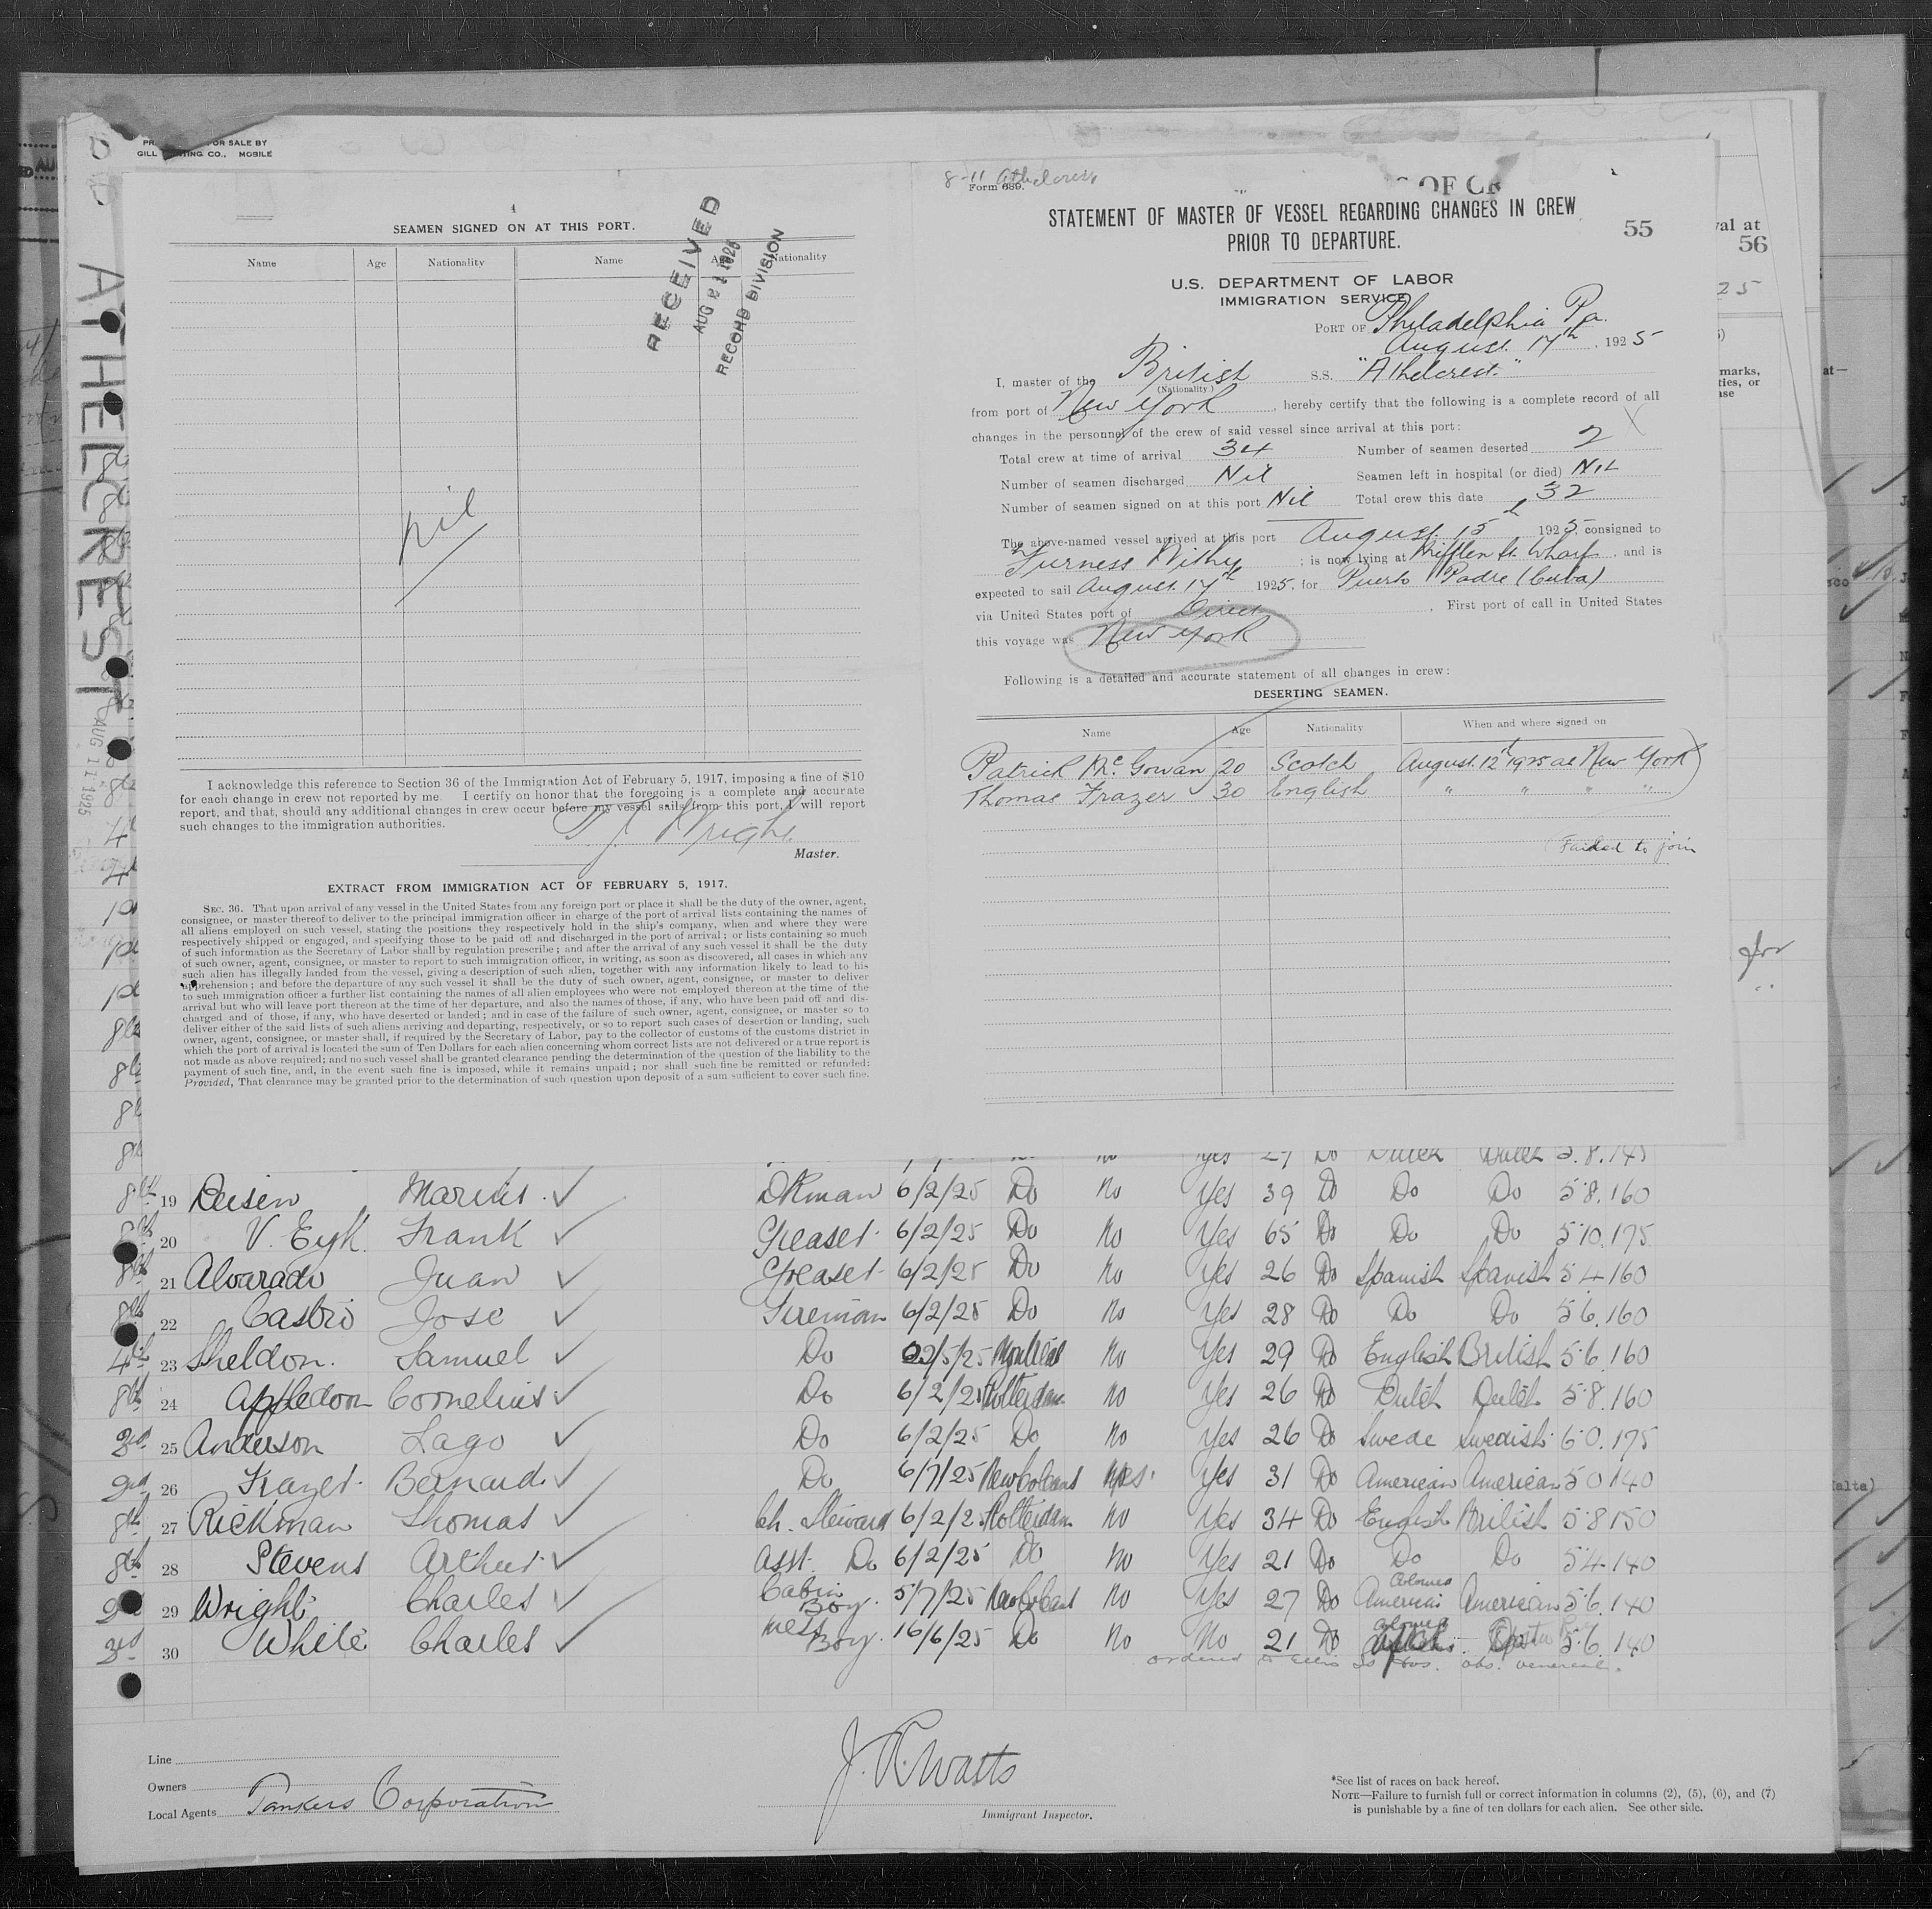 FOR SALE BY
GILL PRINTING CO., MOBILE
ATHELCREST
AUG 11 1925
SEAMEN SIGNED ON AT THIS PORT.
Name Age Nationality Name Age Nationality
RECEIVED
AUG 21 1925
RECORD DIVISION
nil
I acknowledge this reference to Section 36 of the Immigration Act of February 5, 1917, imposing a fine of $10
for each change in crew not reported by me. I certify on honor that the foregoing is a complete and accurate
report, and that, should any additional changes in crew occur before my vessel sails from this port, I will report
such changes to the immigration authorities.
T. J. Wright
Master.
EXTRACT FROM IMMIGRATION ACT OF FEBRUARY 5, 1917.
SEC. 36. That upon arrival of any vessel in the United States from any foreign port or place it shall be the duty of the owner, agent,
consignee, or master thereof to deliver to the principal immigration officer in charge of the port of arrival lists containing the names of
all aliens employed on such vessel, stating the positions they respectively hold in the ship's company, when and where they were
respectively shipped or engaged, and specifying those to be paid off and discharged in the port of arrival; or lists containing so much
of such information as the Secretary of Labor shall by regulation prescribe; and after the arrival of any such vessel it shall be the duty
of such owner, agent, consignee, or master to report to such immigration officer, in writing, as soon as discovered, all cases in which any
such alien has illegally landed from the vessel, giving a description of such alien, together with any information likely to lead to his
apprehension; and before the departure of any such vessel it shall be the duty of such owner, agent, consignee, or master to deliver
to such immigration officer a further list containing the names of all alien employees who were not employed thereon at the time of the
arrival but who will leave port thereon at the time of her departure, and also the names of those, if any, who have been paid off and dis-
charged and of those, if any, who have deserted or landed; and in case of the failure of such owner, agent, consignee, or master so to
deliver either of the said lists of such aliens arriving and departing, respectively, or so to report such cases of desertion or landing, such
owner, agent, consignee, or master shall, if required by the Secretary of Labor, pay to the collector of customs of the customs district in
which the port of arrival is located the sum of Ten Dollars for each alien concerning whom correct lists are not delivered or a true report is
not made as above required; and no such vessel shall be granted clearance pending the determination of the question of the liability to the
payment of such fine, and, in the event such fine is imposed, while it remains unpaid; nor shall such fine be remitted or refunded:
Provided, That clearance may be granted prior to the determination of such question upon deposit of a sum sufficient to cover such fine.
8-11 Athelcrest
Form 689.
OF CR
STATEMENT OF MASTER OF VESSEL REGARDING CHANGES IN CREW
PRIOR TO DEPARTURE.
55
val at
56
25
U.S. DEPARTMENT OF LABOR
IMMIGRATION SERVICE
PORT OF Philadelphia Pa.
August 17th, 1925
I, master of the British S.S. "Athelcrest"
(Nationality.)
from port of New York, hereby certify that the following is a complete record of all
changes in the personnel of the crew of said vessel since arrival at this port:
Total crew at time of arrival 34 Number of seamen deserted 2
Number of seamen discharged Nil Seamen left in hospital (or died) Nil
Number of seamen signed on at this port Nil Total crew this date 32
The above-named vessel arrived at this port August 15th 1925, consigned to
Furness Withy; is now lying at Mifflen St. Wharf, and is
expected to sail August 17th 1925, for Puerto Padre (Cuba)
via United States port of Direct. First port of call in United States
this voyage was New York
Following is a detailed and accurate statement of all changes in crew:
DESERTING SEAMEN.
Name Age Nationality When and where signed on
Patrick McGowan 20 Scotch August 12th 1925 at New York
Thomas Frazer 30 English " " " "
Failed to join
marks,
ties, or
ase
at—
for
8th 19 Deisen Marius DKman 6/2/25 Do No Yes 39 Do Do Do 5 8. 160
8th 20 V. Eyk. Frank Greaser 6/2/25 Do No Yes 65 Do Do Do 5 10. 175
8th 21 Alvarado Juan Greaser 6/2/25 Do No Yes 26 Do Spanish Spanish 5 4 160
8th 22 Castro Jose Fireman 6/2/25 Do No Yes 28 Do Do Do 5 6. 160
4th 23 Sheldon. Samuel Do 22/5/25 Montreal No Yes 29 Do English British 5 6. 160
8th 24 Appledoon Cornelius Do 6/2/25 Rotterdam No Yes 26 Do Dutch Dutch 5 8. 160
3rd 25 Anderson Lago Do 6/2/25 Do No Yes 26 Do Swede Swedish 6 0. 175
2nd 26 Frazer. Bernard. Do 6/7/25 New Orleans Yes. Yes 31 Do American American 5 0 140
8th 27 Rickman Thomas Ch. Steward 6/2/25 Rotterdam No Yes 34 Do English British 5 8 150
8th 28 Stevens Arthur Asst. Do 6/2/25 Do No Yes 21 Do Do Do 5 4. 140
29 Wright Charles Cabin Boy. 5/7/25 New Orleans No Yes 27 Do American American 5 6. 140
3rd 30 White Charles Mess Boy. 16/6/25 Do No No 21 Do 5 6. 140
ordered to Ellis Is Hos. obs. venereal.
Line
Owners
Local Agents Tankers Corporation
J. R. Watts
Immigrant Inspector.
*See list of races on back hereof.
NOTE—Failure to furnish full or correct information in columns (2), (5), (6), and (7)
is punishable by a fine of ten dollars for each alien. See other side.